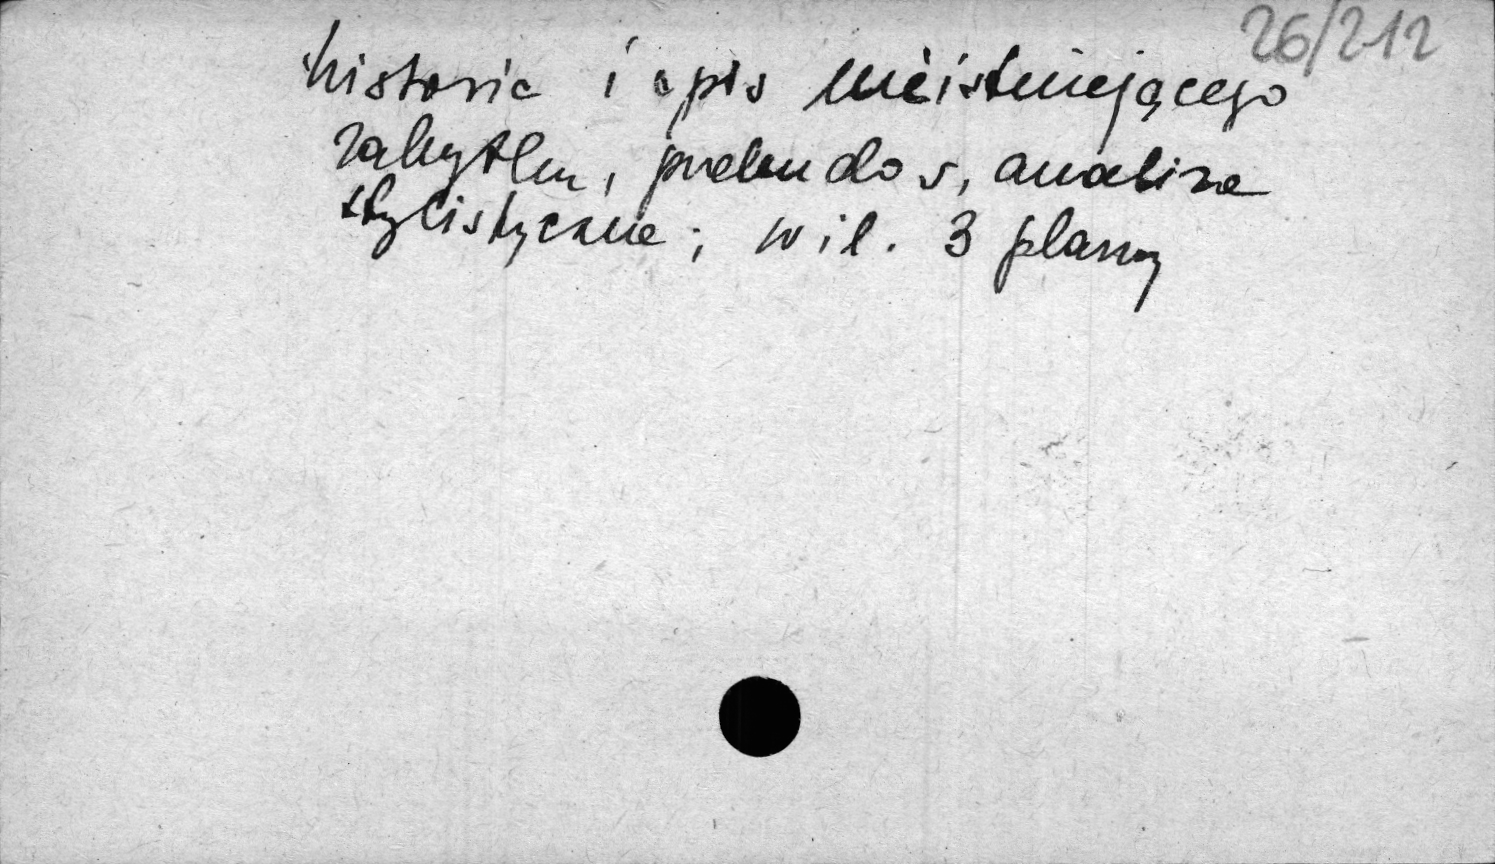 26/212
historia i opis nieistniejącego
zabytku, przebudow, analiza
stylistyczna; w il. 3 plany